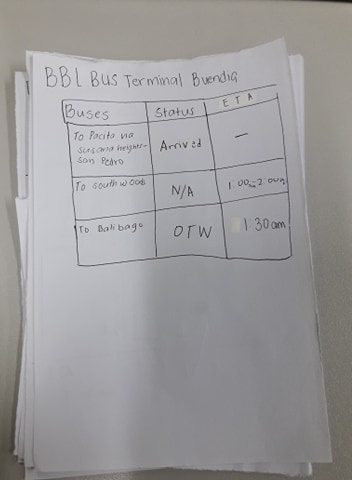 BBL Bus Terminal Buendia
Buses Status ETA
To Pacita via
Susana heights-
San Pedro
Arrived —
To southwoods
N/A 1:00-2:00am
To Balibago OTW 1:30am